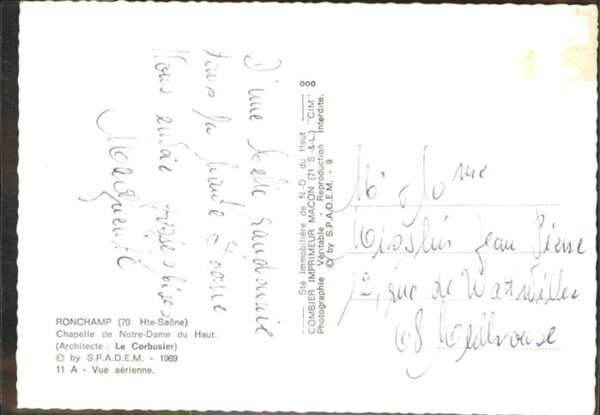 D'une belle randonnée
dans la Haute Saône
Nous envoie grosses bises
Marguerite
RONCHAMP (70 Hte-Saône)
Chapelle de Notre-Dame du Haut.
(Architecte : Le Corbusier)
© by S.P.A.D.E.M. - 1969
11 A - Vue aérienne.
Sté Immobilière de N.-D. du Haut
COMBIER IMPRIMEUR MACON (71 S.-&-L.) "CIM"
Photographie Véritable - Reproduction Interdite.
© by S.P.A.D.E.M. - 9
Mr Mme
Jean Pierre
rue de Wattwiller
68 Mulhouse